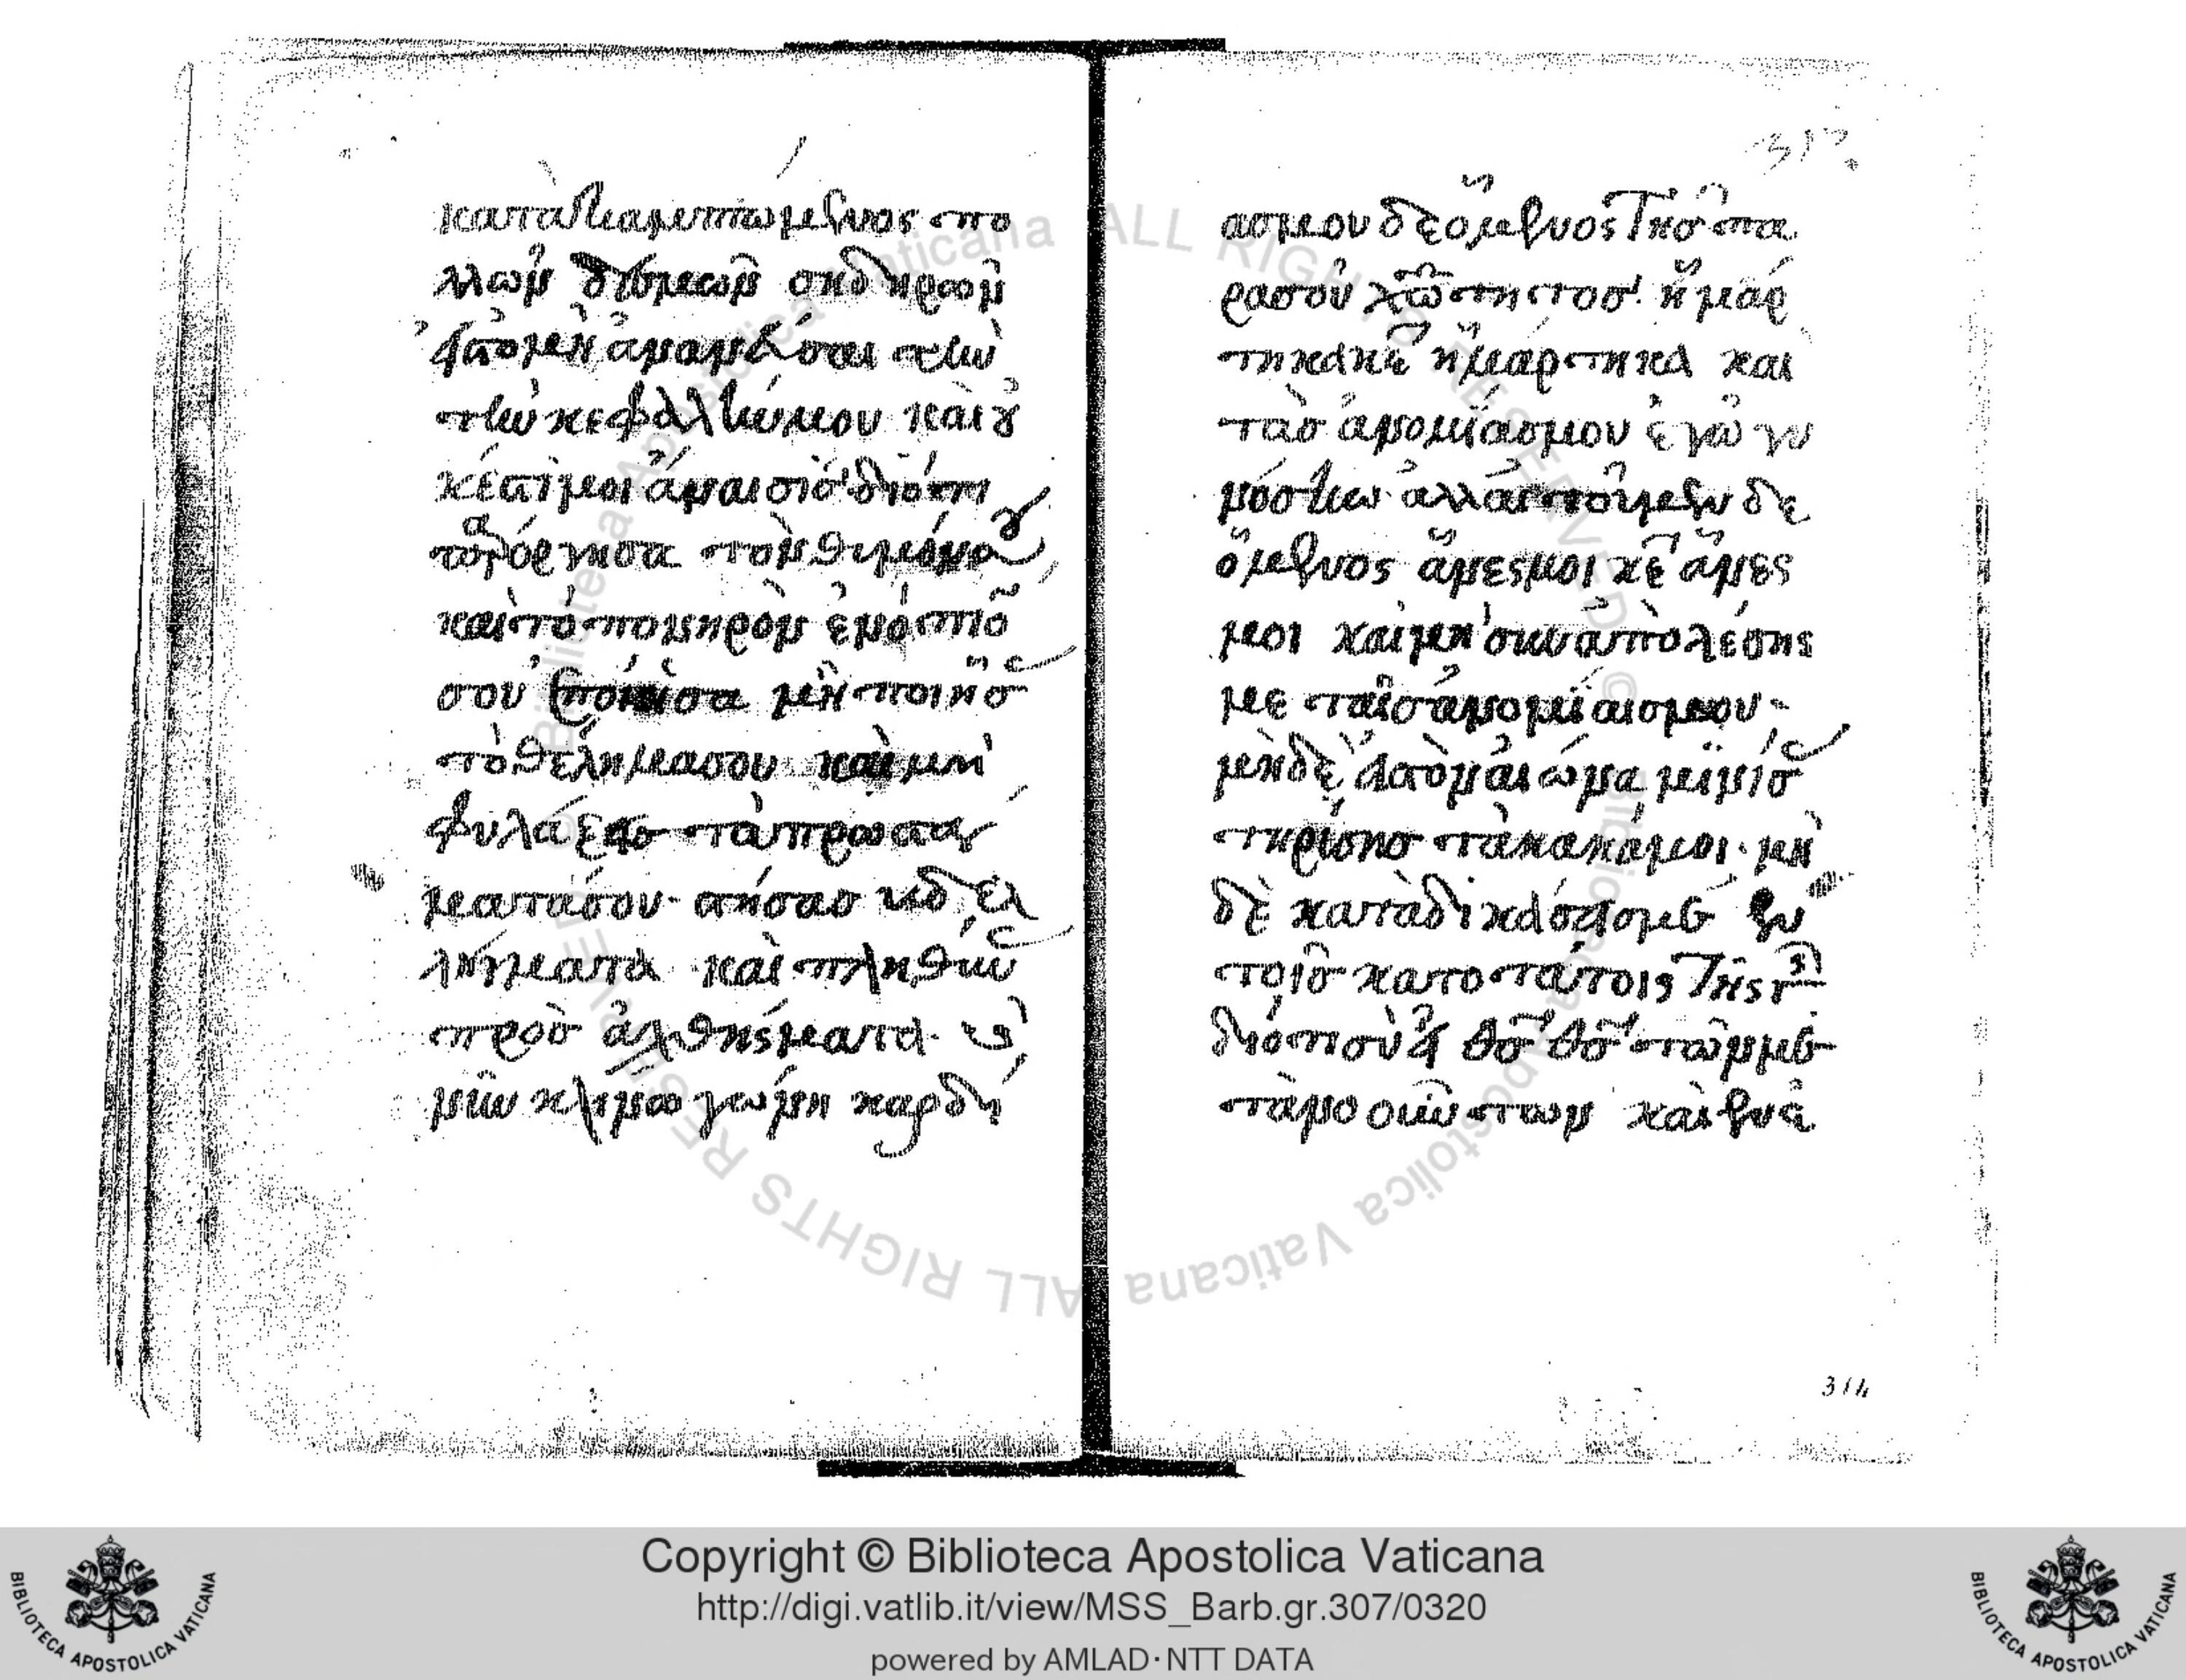 καταδιακαμπτώμενος πο
λλῶν δεσμεών σηδηροον
εἰς τομεὶ ἀνανεῦσαι την
την κεφαλήν μου καὶ οὐ
κέστι μοι ἄναισις διότι
παρόργησα τὸν θυμόν σου
καὶ τὸ πονηρὸν ἐνόπιό
σου ἐποίησα μὴ ποιήσας
τὸ θέλημα σου καὶ μὴ
φυλάξας τὰ πρωστα
ματα σου. στήσας κδελ
λύγματα καὶ πληθήν
προσ ὀχθησματα. καὶ
νῦν κλήνω γώνη καρδή
ασ μου δεόμενος τησ πα
ρα σοῦ χρηστοτητος. ἡμάρ
τηκα κε ἡμάρτηκα και
τὰσ ἀνομίασ μου ἐγὼ γυ
νόσκω ἀλλ' αιτοῦμεν δε
όμενος ἄνες μοι κε ἄνες
μοι και μη συναπολέσης
με ταῖσ ἀνομίαισ μου
μηδὲ εἰς τὸν αιώνα μινίσας
τηρίσησ τὰ κακά μοι. μη
δὲ καταδικάσησ με ἐν
τοῖσ κατοτάτοις τῆς γῆς
διότι σὺ εἶ θσ θσ τῶν με
τανοούντων καὶ ἐν ἐ
313
314
Copyright © Biblioteca Apostolica Vaticana
http://digi.vatlib.it/view/MSS_Barb.gr.307/0320
powered by AMLAD·NTT DATA
BIBLIOTECA APOSTOLICA VATICANA
BIBLIOTECA APOSTOLICA VATICANA